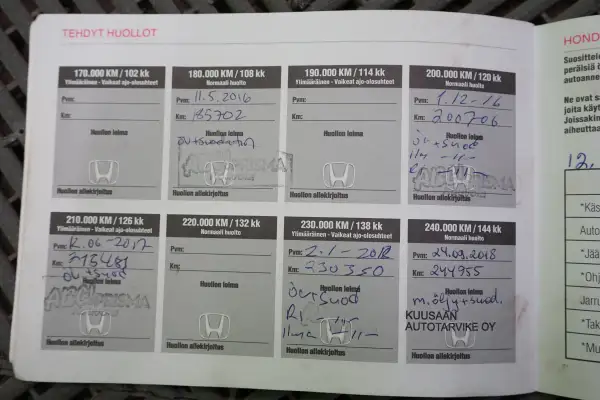 TEHDYT HUOLLOT
170.000 KM / 102 kk
Ylimääräinen - Vaikeat ajo-olosuhteet
Pvm:
Km:
Huollon leima
Huollon allekirjoitus
180.000 KM / 108 kk
Normaali huolto
Pvm: 11.5.2016
Km: 185702
Huollon leima
PRISMA
Huollon allekirjoitus
190.000 KM / 114 kk
Ylimääräinen - Vaikeat ajo-olosuhteet
Pvm:
Km:
Huollon leima
Huollon allekirjoitus
200.000 KM / 120 kk
Normaali huolto
Pvm: 1.12-16
Km: 200706
Huollon leima
öv+suod
ilm -11-
ABC PRISMA
Huollon allekirjoitus
210.000 KM / 126 kk
Ylimääräinen - Vaikeat ajo-olosuhteet
Pvm: 12.06-2017
Km: 215481
Huollon leima
öv+suod
ABC PRISMA
Huollon allekirjoitus
220.000 KM / 132 kk
Normaali huolto
Pvm:
Km:
Huollon leima
Huollon allekirjoitus
230.000 KM / 138 kk
Ylimääräinen - Vaikeat ajo-olosuhteet
Pvm: 2.1-2018
Km: 230350
Huollon leima
öv+suod
ilma -11-
Huollon allekirjoitus
240.000 KM / 144 kk
Normaali huolto
Pvm: 24.09.2018
Km: 244955
Huollon leima
m.öljy+suod.
KUUSAAN
AUTOTARVIKE OY
Huollon allekirjoitus
HOND
Suosittele
peräisiä ö
autoanne
Ne ovat s
joita käyt
Joissakin
aiheutta
12.
*Käs
Auto
*Jää
*Ohj
Jarru
*Tak
*Mu